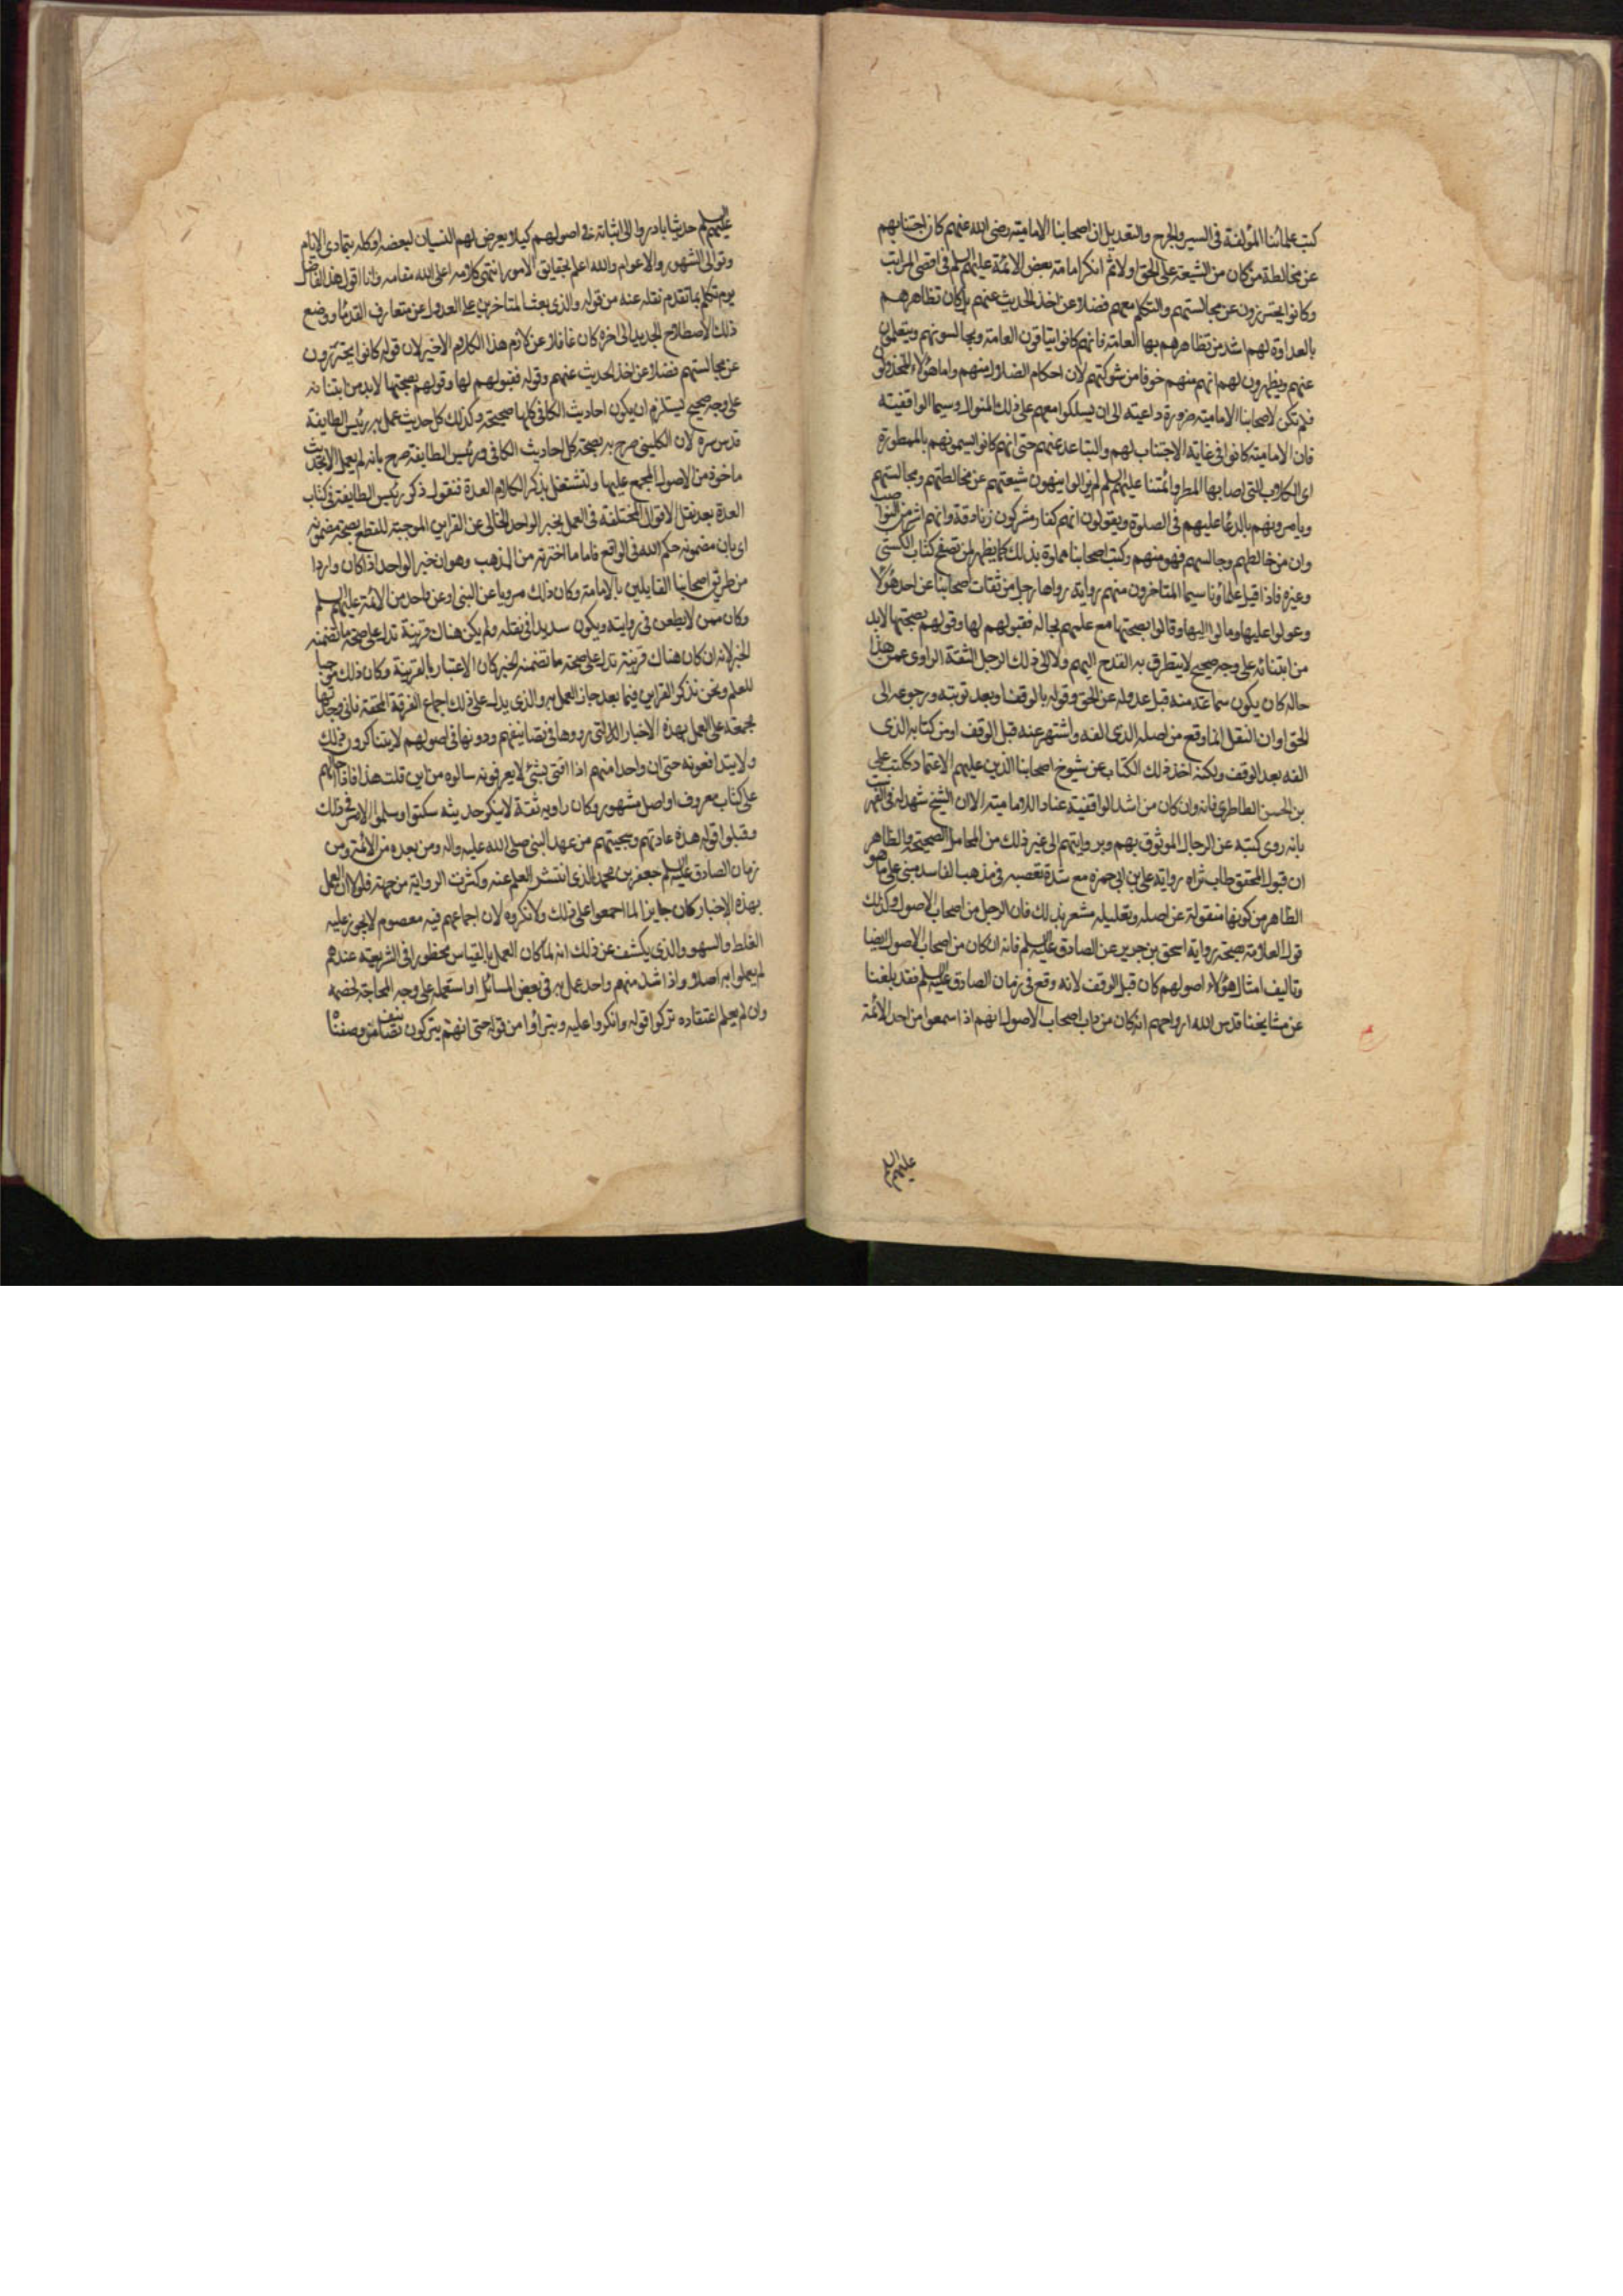 كتب علمائنا المؤلفة فى السير والجرح والتعديل ان اصحابنا الامامية رضى الله عنهم كان اجتنابهم
عن مخالطة من كان من الشيعة على الحق اولا ثم انكر امامة بعض الائمة عليهم السلم فى اقصى المراتب
وكانوا يحترزون عن مجالستهم والتكلم معهم فضلا عن اخذ الحديث عنهم بل كان تظاهرهم
بالعداوة لهم اشد من تظاهرهم بها العامة فانهم كانوا يتاقون العامة ويجالسونهم وينقلون
عنهم ويظهرون لهم انهم منهم خوفا من شوكتهم لان احكام الضلال منهم واما هؤلاء المخذولون
فلم تكن لاصحابنا الامامية ضرورة داعية الى ان يسلكوا معهم على ذلك المنوال وسيما الواقفية
فان الامامية كانوا فى غاية الاجتناب لهم والتباعد عنهم حتى انهم كانوا يسمونهم بالممطورة
اى الكلاب التى اصابها المطر وائمتنا عليهم السلم لم يزالوا ينهون شيعتهم عن مخالطتهم ومجالستهم
ويامرونهم بالدعاء عليهم فى الصلوة ويقولون انهم كفار مشركون زنادقة وانهم اشر من النواصب
وان من خالطهم وجالسهم فهو منهم وكتب اصحابنا مملوة بذلك كما يظهر لمن تصفح كتاب الكشى
وغيره فاذا قبل علماؤنا سيما المتاخرون منهم رواية رواها رجل من ثقات اصحابنا عن احد هؤلاء
وعولوا عليها ومالوا اليها وقالوا بصحتها مع علمهم بحاله فقبولهم لها وقولهم بصحتها لابد
من ابتنائه على وجه صحيح لا يتطرق به القدح اليهم ولا الى ذلك الرجل الثقة الراوى عمن هذا
حاله كان يكون سماعه منه قبل عدوله عن الحق وقوله بالوقف او بعد توبته ورجوعه الى
الحق او ان النقل انما وقع من اصله الذى الفه واشتهر عنه قبل الوقف او من كتابه الذى
الفه بعد الوقف ولكنه اخذ ذلك الكتاب عن شيوخ اصحابنا الذين عليهم الاعتماد ككتب على
بن الحسن الطاطرى فانه وان كان من اشد الواقفية عنادا للامامية الا ان الشيخ شهد له فى الفهرست
بانه روى كتبه عن الرجال الموثوق بهم وبروايتهم الى غير ذلك من المحامل الصحيحة والظاهر
ان قبول المحقق طاب ثراه رواية على بن ابى حمزه مع شدة تعصبه فى مذهبه الفاسد مبنى على ما هو
الظاهر من كونها منقولة عن اصله وتعليله مشعر بذلك فان الرجل من اصحاب الاصول وكذلك
قول العلامة بصحة رواية اسحق بن جرير عن الصادق عليه السلم فانه ان كان من اصحاب الاصول ايضا
وتاليف امثال هؤلاء اصولهم كان قبل الوقف لانه وقع فى زمان الصادق عليه السلم فقد بلغنا
عن مشايخنا قدس الله ارواحهم انه كان من داب اصحاب الاصول انهم اذا سمعوا من احد الائمة
عليهم السلم
عليهم السلم حديثا بادروا الى اثباته فى اصولهم كيلا يعرض لهم النسيان لبعضه او كله بتمادى الايام
وتوالى الشهور والاعوام والله اعلم بحقايق الامور انتهى كلامه اعلى الله مقامه وانا اقول هذا الفاضل
يوم تكلم بما تقدم نقله عنه من قوله والذى بعث المتاخرين على العدول عن متعارف القدما ووضع
ذلك الاصطلاح الجديد الى اخره كان غافلا عن لازم هذا الكلام الاخير لان قوله كانوا يحترزون
عن مجالستهم فضلا عن اخذ الحديث عنهم وقوله فقبولهم لها وقولهم بصحتها لابد من ابتنائه
على وجه صحيح يستلزم ان يكون احاديث الكافى كلها صحيحة وكذلك كل حديث عمل به رئيس الطايفة
قدس سره لان الكلينى صرح بصحة كل احاديث الكافى ورئيس الطايفة صرح بانه لم يعمل الا بحديث
ماخوذ من الاصول المجمع عليها ولنشتغل بذكر الكلام العدة فنقول ذكر رئيس الطايفة فى كتاب
العدة بعد نقل الاقوال المختلفة فى العمل بخبر الواحد الخالى عن القراين الموجبة للقطع بصحة مضمونه
اى بان مضمونه حكم الله فى الواقع فاما ما اخترته من المذهب وهو ان خبر الواحد اذا كان واردا
من طريق اصحابنا القايلين بالامامة وكان ذلك مرويا عن النبى او عن واحد من الائمة عليهم السلم
وكان ممن لا يطعن فى روايته ويكون سديدا فى نقله ولم يكن هناك قرينة تدل على صحة ما تضمنه
الخبر لانه ان كان هناك قرينة تدل على صحة ما تضمنه الخبر كان الاعتبار بالقرينة وكان ذلك موجبا
للعلم ونحن نذكر القراين فيما بعد جاز العمل به والذى يدل على ذلك اجماع الفرقة المحقة فانى وجدتها
مجمعة على العمل بهذه الاخبار التى رووها فى تصانيفهم ودونوها فى اصولهم لا يتناكرون ذلك
ولا يتدافعونه حتى ان واحدا منهم اذا افتى بشئ لا يعرفونه سالوه من اين قلت هذا فاذا احالهم
على كتاب معروف او اصل مشهور وكان راويه ثقة لا ينكر حديثه سكتوا وسلموا الامر فى ذلك
وقبلوا قوله هذه عادتهم وسجيتهم من عهد النبى صلى الله عليه واله ومن بعده من الائمة ومن
زمان الصادق عليه السلم جعفر بن محمد الذى انتشر العلم عنه وكثرت الرواية من جهته فلولا ان العمل
بهذه الاخبار كان جايزا لما اجمعوا على ذلك ولانكروه لان اجماعهم فيه معصوم لا يجوز عليه
الغلط والسهو والذى يكشف عن ذلك انه لما كان العمل بالقياس محظورا فى الشريعة عندهم
لم يعملوا به اصلا واذا شذ منهم واحد عمل به فى بعض المسائل او استعمله على وجه المحاجة لخصمه
وان لم يعلم اعتقاده تركوا قوله وانكروا عليه وتبراوا من قوله حتى انهم يتركون تصانيف من وصفناه